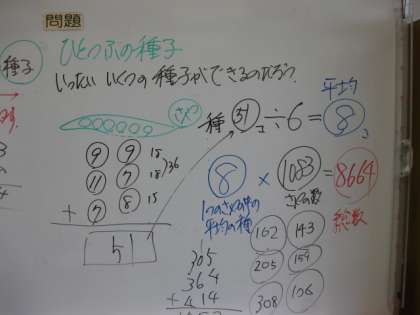 問題
種子
ひとつぶの種子
いったい いくつの種子ができるのだろう
さや
9 9 18
11 7 18 36
+ 7 8 15
51
種 51コ ÷6= 8コ
平均
8 × 1083 = 8664
1つのさやの中の
平均の種
さやの数
総数
305
364
+ 414
102 143
205 159
308 106